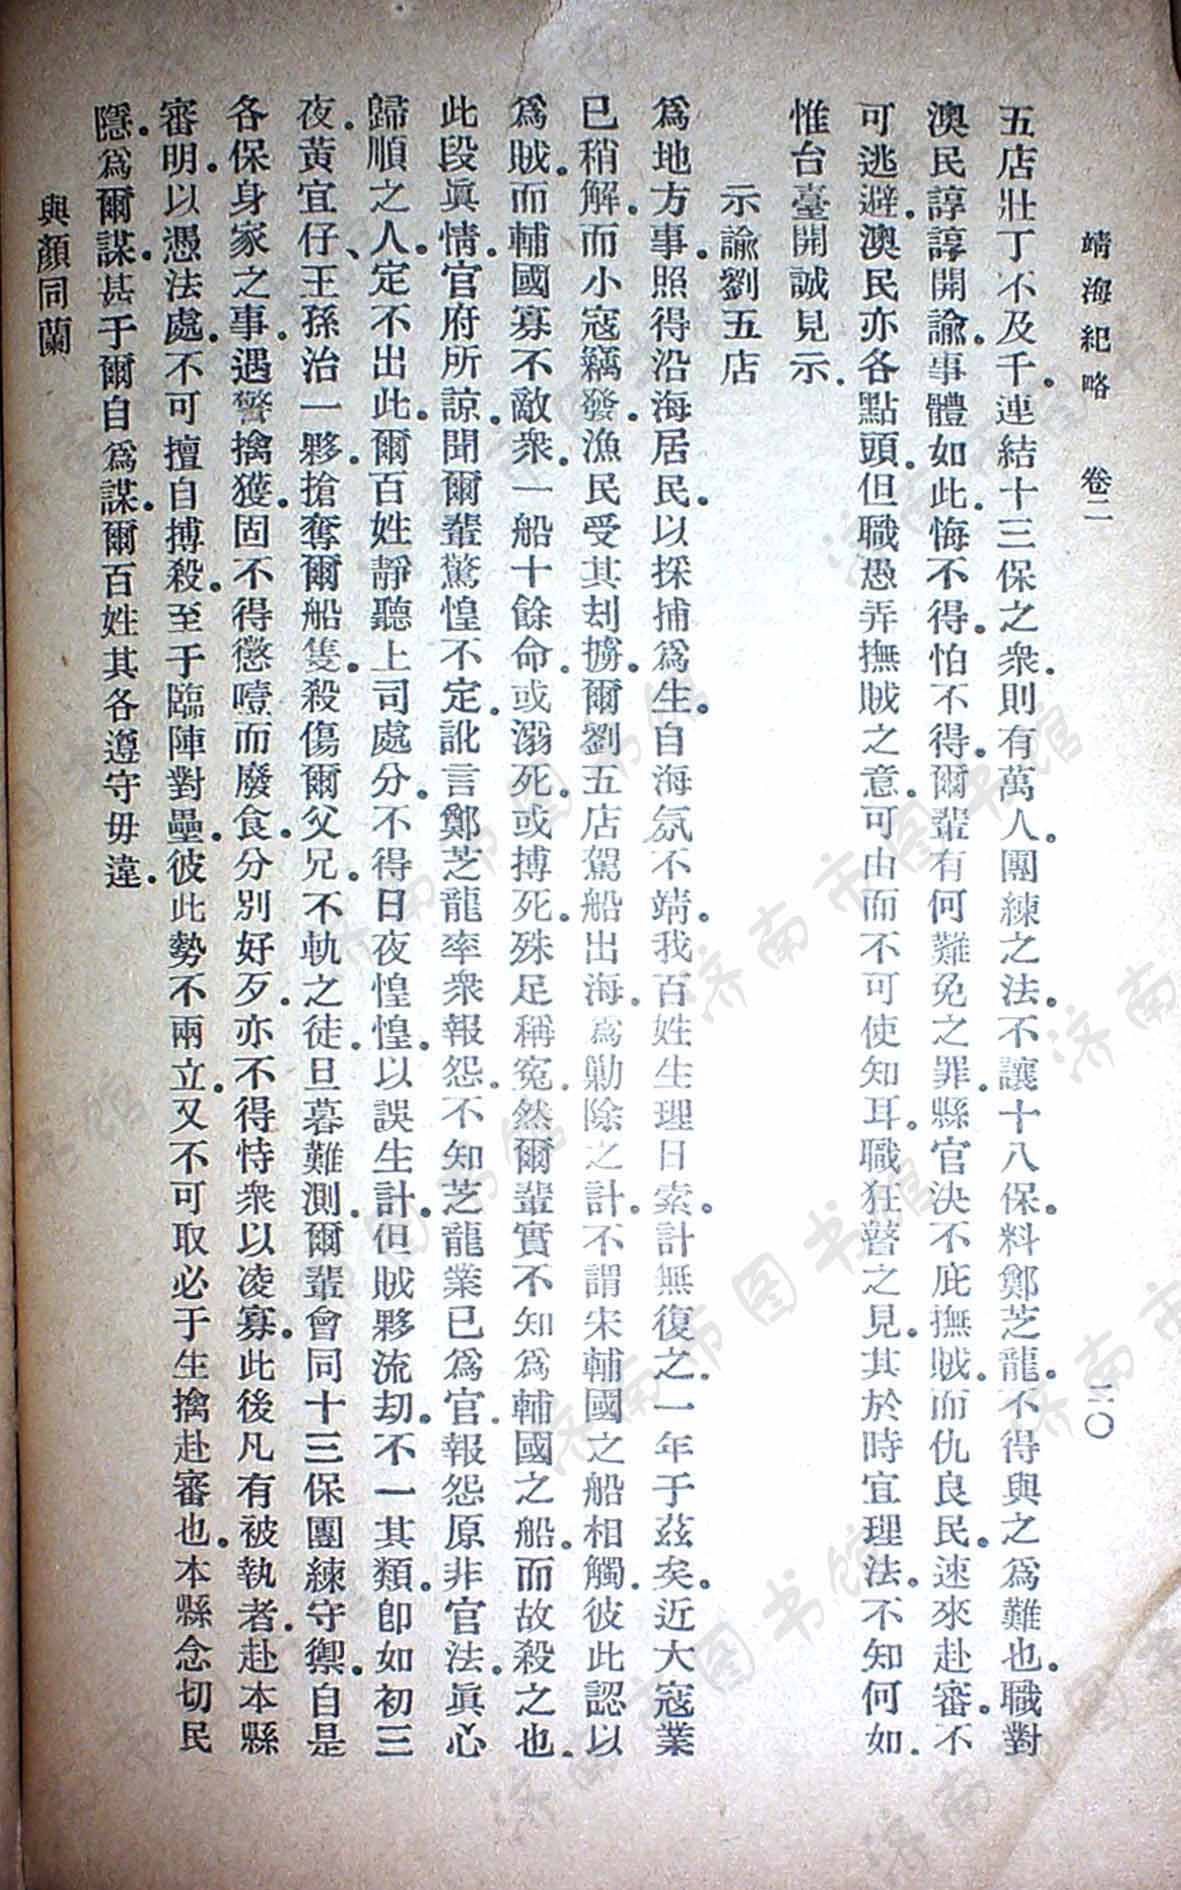 靖海紀略　卷二　二〇
五店壯丁不及千。連結十三保之衆。則有萬人。團練之法。不讓十八保。料鄭芝龍。不得與之爲難也。職對
澳民諄諄開諭。事體如此。悔不得。怕不得。爾輩有何難免之罪。縣官決不庇撫賊。而仇良民。速來赴審。不
可逃避。澳民亦各點頭。但職愚弄撫賊之意。可由而不可使知耳。職狂瞽之見。其於時宜理法。不知何如。
惟台臺開誠見示。
示諭劉五店
爲地方事。照得沿海居民。以採捕爲生。自海氛不靖。我百姓生理日索。計無復之。一年于茲矣。近大寇業
已稍解。而小寇竊發。漁民受其刦擄。爾劉五店駕船出海。爲勦除之計。不謂宋輔國之船相觸。彼此認以
爲賊。而輔國寡不敵衆。一船十餘命。或溺死。或搏死。殊足稱冤。然爾輩實不知爲輔國之船。而故殺之也。
此段眞情。官府所諒。聞爾輩驚惶不定。訛言鄭芝龍率衆報怨。不知芝龍業已爲官。報怨原非官法。眞心
歸順之人。定不出此。爾百姓靜聽上司處分。不得日夜惶惶。以誤生計。但賊夥流劫。不一其類。卽如初三
夜。黃宜仔、王孫治一夥。搶奪爾船隻。殺傷爾父兄。不軌之徒。旦暮難測。爾輩會同十三保團練守禦。自是
各保身家之事。遇警擒獲。固不得懲噎而廢食。分別好歹。亦不得恃衆以凌寡。此後凡有被執者。赴本縣
審明。以憑法處。不可擅自搏殺。至于臨陣對壘。彼此勢不兩立。又不可取必于生擒赴審也。本縣念切民
隱。爲爾謀。甚于爾自爲謀。爾百姓其各遵守毋違。
與顏同蘭
濟南市图书馆